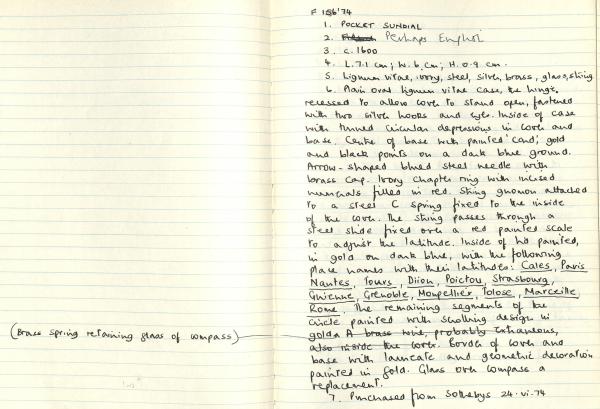 F 156'74
1. POCKET SUNDIAL
2. Perhaps English
3. c. 1600
4. L. 7.1 cm; W. 6 cm; H. 0.9 cm.
5. Lignum vitae, ivory, steel, silver, brass, glass, string
6. Plain oval lignum vitae case, the hinge
recessed to allow cover to stand open, fastened
with two silver hooks and eyes. Inside of case
with turned circular depressions in cover and
base. Centre of base with painted 'card', gold
and black points on a dark blue ground.
Arrow-shaped blued steel needle with
brass cap. Ivory chapter ring with incised
numerals filled in red. String gnomon attached
to a steel C spring fixed to the inside
of the cover. The string passes through a
steel slide fixed over a red painted scale
to adjust the latitude. Inside of lid painted,
in gold on dark blue, with the following
place names with their latitudes: Cales, Paris
Nantes, Tours, Dijon, Poictou, Strasbourg,
Guienne, Grenoble, Monpellier, Tolose, Marceille,
Rome. The remaining segments of the
circle painted with scrolling design in
(Brass spring retaining glass of compass) gold. A brass wire, probably extraneous,
also inside the cover. Border of cover and
base with laureate and geometric decoration
painted in gold. Glass over compass a
replacement.
7. Purchased from Sothebys 24·vi·74